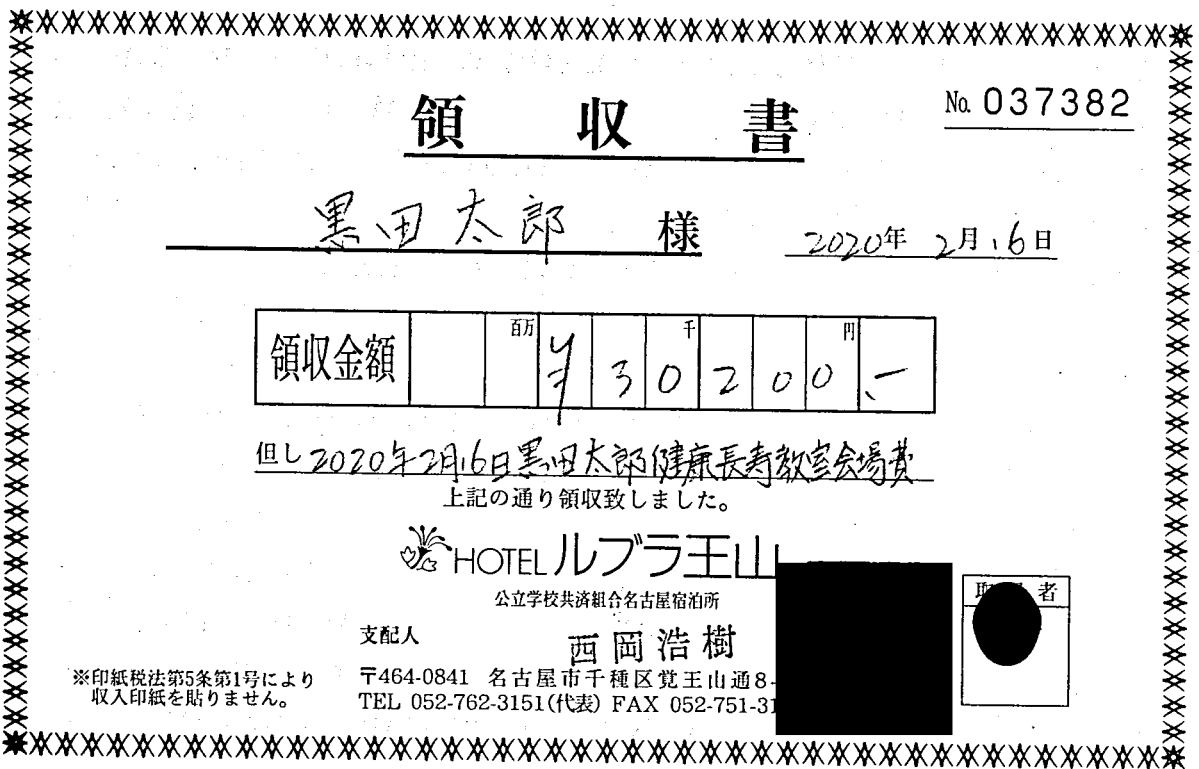 No. 037382
領収書
黒田太郎 様
2020年 2月16日
領収金額 百万 千 円
¥30200.-
但し 2020年2月16日黒田太郎健康長寿教室会場費
上記の通り領収致しました。
HOTEL ルブラ王山
公立学校共済組合名古屋宿泊所
取 者
支配人 西岡浩樹
※印紙税法第5条第1号により
収入印紙を貼りません。
〒464-0841 名古屋市千種区覚王山通8-
TEL 052-762-3151(代表) FAX 052-751-31